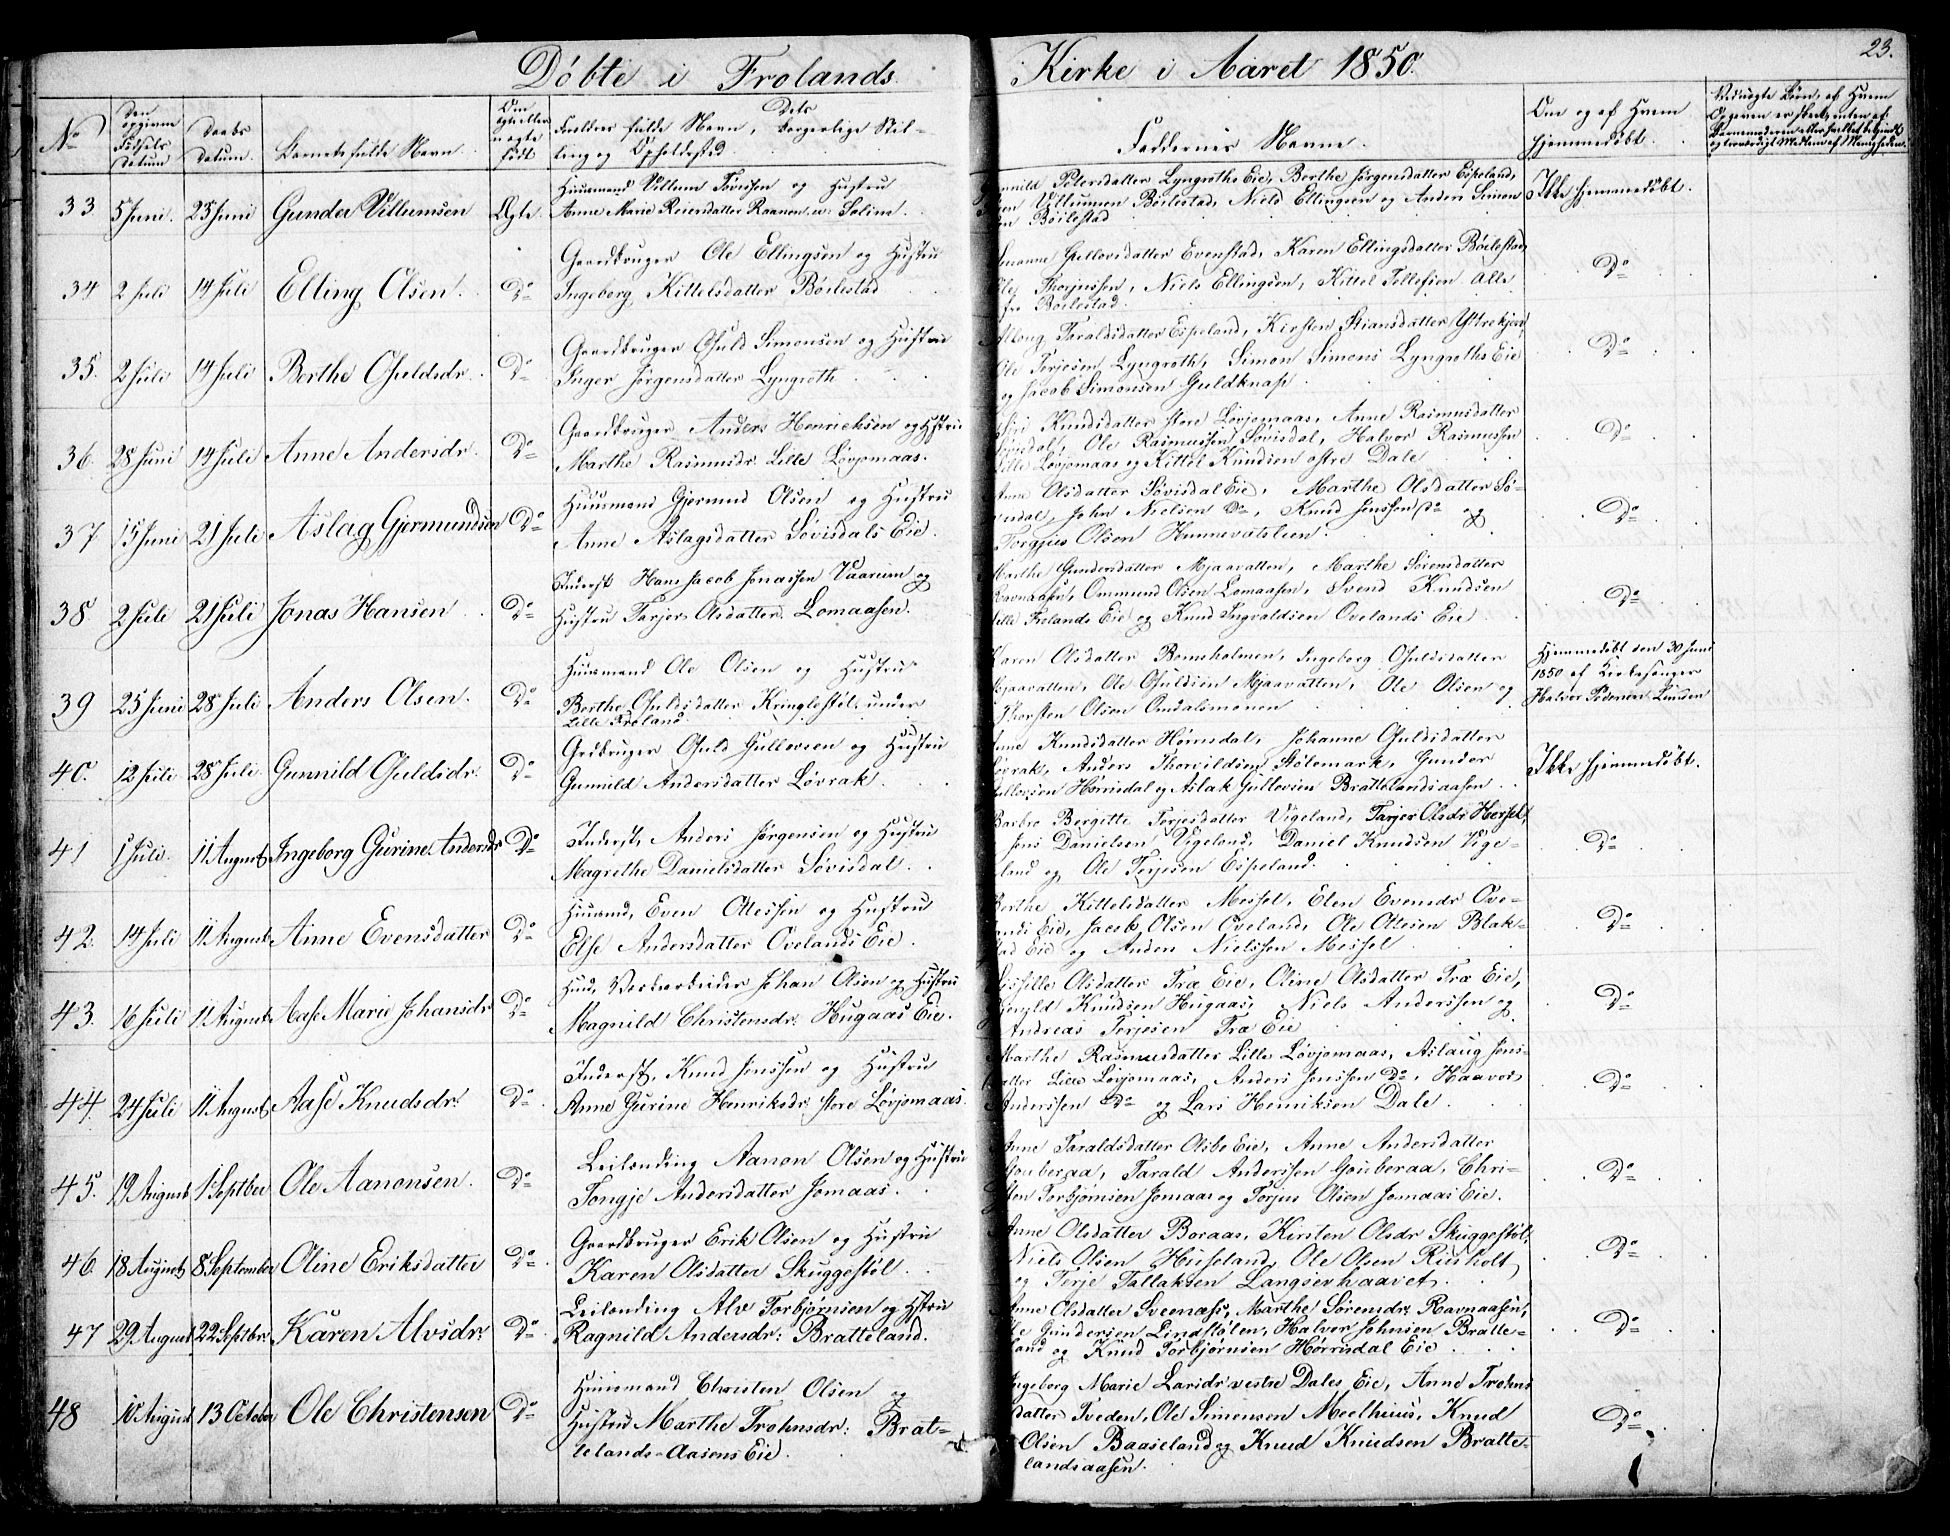 Døbte i Frolands Kirke i Aaret 1850.
23.
No
Den opgivne Fødsels Datum
Daabs Datum.
Barnets fulde Navn.
Om ægte eller uægte født
Forældres fulde Navn, Dets borgerlige Stilling og Opholdssted
Faddernes Navne.
Om og af Hvem hjemmedøbt.
33 5 Juni. 23 Juni Gunder Villumsen Ægte.
Huusmand Villum Tovessen og Hustru
Anne Marie Reiersdatter
Petersdatter Lyngroths Eie, Berthe Jørgensdatter Espeland,
Villumsen Bøilestad, Niels Ellingsen og Anders Simon
Bøilestad
Ikke hjemmedøbt.
34 2 Juli 14 Juli Elling Olsen. Do
Gaardbruger Ole Ellingsen og Hustru
Ingeborg Kittelsdatter Bøilestad
Gullovsdatter Evenstad, Karen Ellingsdatter Bøilestad,
Niels Ellingsen, Kittel Tellefsen Alle
fra Bøilestad.
Do
35. 2 Juli 14 Juli Berthe Ofuldsdr. Do
Gaardbruger Ofuld Simonsen og Hustru
Inger Jørgensdatter Lyngroth
Taraldsdatter Espeland, Kirsten Stiansdatter
Ole Terjesen Lyngroth, Simon Simons Lyngroths Eie
og Jacob Simonsen Guldknap.
Do
36. 28 Juni 14 Juli Anne Andersdr. Do
Gaardbruger Anders Henriksen og Hstru
Marthe Rasmusdr. Lille Løvjomaas.
Siri Knudsdatter store Løvjomaas, Anne Rasmusdatter
Søvisdal, Ole Rasmussen Søvisdal, Halvor Rasmussen
Lille Løvjomaas og Kittel Knudsen østre Dale
Do
37 15 Juni 21 Juli Aslag Gjermundsen Do
Huusmand Gjermund Olsen og Hustru
Anne Aslagsdatter Søvisdals Eie.
Anne Olsdatter Søvisdal Eie, Marthe Olsdatter Sø-
visdal, John Nielsen Do, Knud Jenssen Do og
Torgjus Olsen
Do
38 2 Juli 21 Juli Jonas Hansen Do
Inderst Hans Jacob Jonassen Vaarum og
Hustru Tarjer Olsdatter Lomaasen.
Marthe Gundersdatter Mjaavatten, Marthe Sørensdatter
Ravnaasen, Ommund Olsen Lomaasen, Svend Knudsen
Lille Frolands Eie og Knud Ingvaldsen Ovelands Eie
Do
39 25 Juni 28 Juli Anders Olsen. Do
Huusmand Ole Olsen og Hustru
Berthe Ofuldsdatter Kringlestøl under
Lille Froland.
Karen Olsdatter Bomsholmen, Ingeborg Ofuldsdatter
Mjaavatten, Ole Ofuldsen Mjaavatten, Ole Olsen og
Thorsten Olsen
Hjemmedøbt den 30 Juni
1850 af Kirkesanger
Halvor Pedersen Linden
40. 12 Juli 28 Juli Gunnild Ofuldsdr. Do
Grdbruger Ofuld Gullovsen og Hustru
Gunnild Andersdatter Løvrak.
Anne Knudsdatter Hørnsdal, Johanne Ofuldsdatter
Løvrak, Anders Thorvildsen Stølemark, Gunder
Gullovsen Hørnsdal og Aslak Gullovsen Brattelandsaasen.
Ikke hjemmedøbt.
41 1 Juli. 11 August Ingeborg Gurine Andersdr Do
Inderst, Anders Jørgensen og Hustru
Magrethe Danielsdatter Søvisdal.
Barbro Bergitte Terjesdatter Vigeland, Tarjer Olsdr Hersel,
Jens Danielsen Vigeland, Daniel Knudsen Vige-
land og Ole Terjesen Espeland.
Do
42. 14 Juli 11 August Anne Evensdatter Do
Huusmd, Even Olessen og Hustru
Else Andersdatter Ovelands Eie.
Berthe Kittelsdatter Messel, Elen Evensdr Ove-
lands Eie, Jacob Olsen Oveland, Ole Olesen Blak-
stad Eie og Anders Nielssen Messel
Do
43. 16 Juli 11 August Aase Marie Johansdr Do
Johan Olsen og Hustru
Magnild Christensdr: Hugaas Eie.
Olsdatter Træ Eie, Oline Olsdatter Træ Eie,
Knudsen Hugaas, Niels Anderssen og
Andreas Terjesen Træ Eie
Do
44. 24 Juli 11 August Aase Knudsdr. Do
Inderst, Knud Jenssen og Hustru
Anne Gurine Henriksdr. store Løvjomaas.
Marthe Rasmusdatter Lille Løvjomaas, Aslaug Jens-
datter Lille Løvjomaas, Anders Jenssen Do, Haavor
Anderssen Do og Lars Henriksen Dale.
Do
45. 19 August 1 Septber Ole Aanonsen. Do
Leilending Aanon Olsen og Hustru
Tongje Andersdatter Jomaas.
Anne Taraldsdatter Olsbo Eie, Anne Andersdatter
Gouberaa, Tarald Anderssen Gouberaa, Chri-
sten Torbjørnsen Jomaas og Terjus Olsen Jomaas Eie.
Do
46. 18 August 8 September Oline Eriksdatter Do
Gaardbruger Erik Olsen og Hustru
Karen Olsdatter Skuggestøl
Anne Olsdatter Boraas, Kirsten Olsdr Skuggestøl,
Niels Olsen Huseland, Ole Olsen Risholt
og Terje Tallaksen Langsevhaavet.
Do
47 29 August 22 Septbr. Karen Alvsdr. Do
Leilending Alv Torbjørnsen og Hstru
Ragnild Andersdr: Bratteland.
Anne Olsdatter Sveenaas, Marthe Sørensdr. Ravnaasen,
Ole Gundersen Lindstølen, Halvor Johnsen Bratte-
land og Knud Torbjørnsen Hørrisdal Eie
Do
48 16 August 13 October Ole Christensen Do
Huusmand Christen Olsen og
Hustru Marthe Trohnsdr: Brat-
telands-Aasens Eie.
Ingeborg Marie Larsdr vestre Dales Eie, Anne Trohns
datter Tveden, Ole Simonsen Moelhuus, Knud
Olsen Baaseland og Knud Knudsen Bratte-
landsaasen.
Do